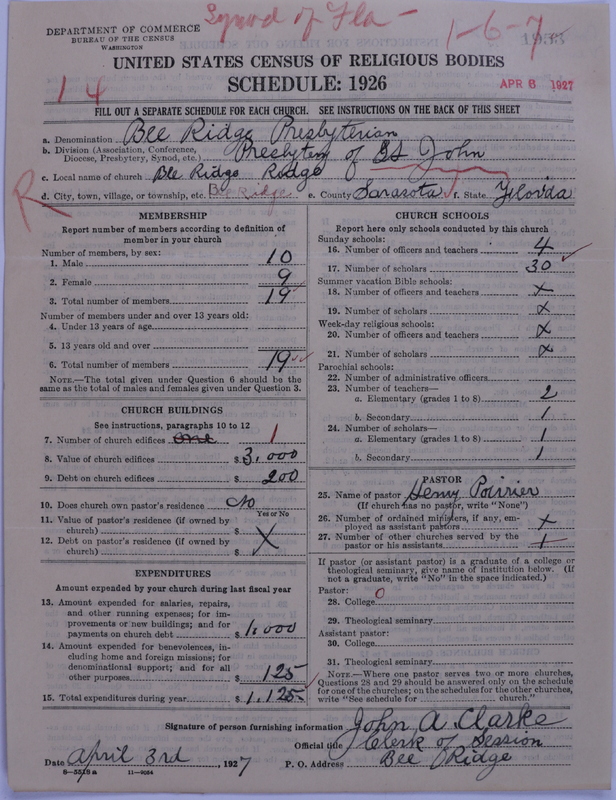 Synod of Fla - 1-6-7
DEPARTMENT OF COMMERCE
BUREAU OF THE CENSUS
WASHINGTON
UNITED STATES CENSUS OF RELIGIOUS BODIES
14
SCHEDULE: 1926
APR 8 1927
FILL OUT A SEPARATE SCHEDULE FOR EACH CHURCH. SEE INSTRUCTIONS ON THE BACK OF THIS SHEET
a. Denomination Bee Ridge Presbyterian
b. Division (Association, Conference, Diocese, Presbytery, Synod, etc.) Presbytery of St John
c. Local name of church Bee Ridge
R
d. City, town, village, or township, etc. Bee Ridge e. County Sarasota f. State Florida
MEMBERSHIP
Report number of members according to definition of
member in your church
Number of members, by sex:
1. Male 10
2. Female 9
3. Total number of members 19
Number of members under and over 13 years old:
4. Under 13 years of age
5. 13 years old and over
6. Total number of members 19
NOTE.—The total given under Question 6 should be the
same as the total of males and females given under Question 3.
CHURCH BUILDINGS
See instructions, paragraphs 10 to 12
7. Number of church edifices One 1
8. Value of church edifices $ 3,000
9. Debt on church edifices $ 200
10. Does church own pastor's residence No
Yes or No
11. Value of pastor's residence (if owned by
church) $ X
12. Debt on pastor's residence (if owned by
church) $
EXPENDITURES
Amount expended by your church during last fiscal year
13. Amount expended for salaries, repairs,
and other running expenses; for im-
provements or new buildings; and for
payments on church debt $ 1,000
14. Amount expended for benevolences, in-
cluding home and foreign missions; for
denominational support; and for all
other purposes $ 125
15. Total expenditures during year $ 1,125
CHURCH SCHOOLS
Report here only schools conducted by this church
Sunday schools:
16. Number of officers and teachers 4
17. Number of scholars 30
Summer vacation Bible schools:
18. Number of officers and teachers x
19. Number of scholars x
Week-day religious schools:
20. Number of officers and teachers x
21. Number of scholars x
Parochial schools:
22. Number of administrative officers
23. Number of teachers—
a. Elementary (grades 1 to 8) 2
b. Secondary 1
24. Number of scholars—
a. Elementary (grades 1 to 8) 1
b. Secondary 1
PASTOR
25. Name of pastor Henry Poirrier
(If church has no pastor, write "None")
26. Number of ordained ministers, if any, em-
ployed as assistant pastors +
27. Number of other churches served by the
pastor or his assistants +
If pastor (or assistant pastor) is a graduate of a college or
theological seminary, give name of institution below. (If
not a graduate, write "No" in the space indicated.)
Pastor:
28. College 0
29. Theological seminary
Assistant pastor:
30. College
31. Theological seminary
NOTE.—Where one pastor serves two or more churches,
Questions 28 and 29 should be answered only on the schedule
for one of the churches; on the schedules for the other churches,
write "See schedule for church."
Signature of person furnishing information John A Clarke
Official title Clerk of Session
Date April 3rd, 1927 P. O. Address Bee Ridge
8-5519a 11-9034